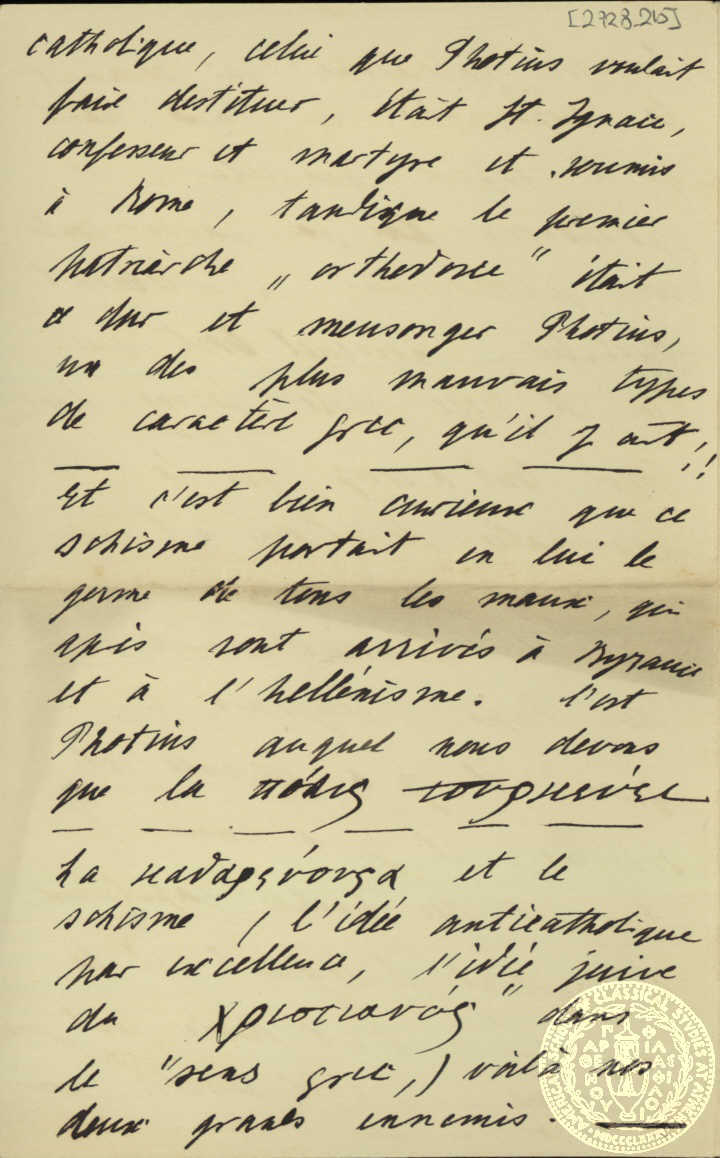 [2728-26]
catholique, celui que Photius voulait
faire destituer, était St. Ignace,
confesseur et martyre et soumis
à Rome, tandique le premier
patriarche „orthodoxe" était
ce dur et mensonger Photius,
un des plus mauvais types
de caractère grec, qu'il y ait!!
Et c'est bien curieux que ce
schisme portait en lui le
germe de tous les maux, qui
après sont arrivés à Byzance
et à l'hellénisme. C'est
Photius auquel nous devons
que la πόλις τουρκεύει
La καθαρεύουσα et le
schisme (l'idée anticatholique
par excellence, l'idée juive
du χριστιανός" dans
le "sens grec,) voilà nos
deux grands ennemis.